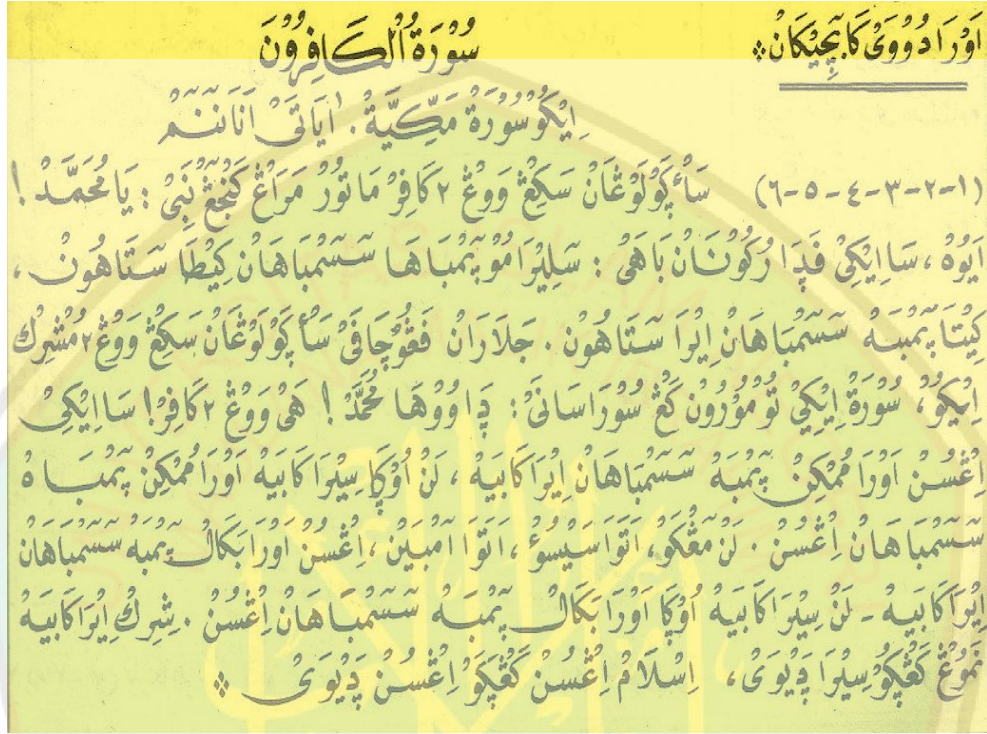 اَوْرَا دُووَيْ كَابٓجِيْكَانْ ۞
سُوْرَةُ الْكَافِرُوْنَ
اِيْكُوْ سُوْرَةْ مَكِّيَّةْ. اٰيَاتَىْ اَنَا نَنٓمْ
(١-٢-٣-٤-٥-٦) سَأْ ڮَوْلَوْڠَانْ سَكِڠْ وَوْڠْ ٢ كَافِرْ مَاتُوْر مَرَاڠْ كَنْجٓڠْ نَبِيْ : يَا مُحَمَّدْ !
اَيَوْه، سَاايْكِيْ فَڊَا رُكُوْنَانْ بَاهَىْ : سَلِيْرَامُوْ يٓمْبَاهَا سٓسٓمْبَاهَانْ كِيْطَا سٓتَاهُوْن،
كِيْتَا يٓمْبَه سٓسٓمْبَاهَانْ اِيْرَا سٓتَاهُوْن. جَلَارَانْ فَڠُوْچَافَىْ سَأْ ڮَوْلَوْڠَانْ سَكِڠْ وَوْڠْ ٢ مُشْرِكْ
اِيْكُوْ، سُوْرَةْ اِيْكِيْ تُوْمُوْرُوْن كَڠْ سُوْرَاسَانَىْ : ڊَاوُوْهَا مُحَمَّدْ ! هَىْ وَوْڠْ ٢ كَافِرْ! سَاايْكِيْ
اِڠْسُنْ اَوْرَا مُمْكِنْ يٓمْبَهْ سٓسٓمْبَاهَانْ اِيْرَا كَابَيْه، لَنْ اُوْڮَا سِيْرَا كَابَيْه اَوْرَا مُمْكِنْ يٓمْبَاهْ
سٓسٓمْبَاهَانْ اِڠْسُنْ. لَنْ مٓڠْكَو، اَتَوَا سَيْسُوْءْ، اَتَوَا اَمْبَيْن، اِڠْسُنْ اَوْرَا بَكَالْ يٓمْبَه سٓسٓمْبَاهَانْ
اِيْرَا كَابَيْه - لَنْ سِيْرَا كَابَيْه اُوْڮَا اَوْرَا بَكَالْ يٓمْبَه سٓسٓمْبَاهَانْ اِڠْسُنْ. شِرِكْ اِيْرَا كَابَيْه
نَمُوْڠْ كَڠْڮَوْ سِيْرَا ڊَيْوَىْ، اِسْلَامْ اِڠْسُنْ كَڠْڮَوْ اِڠْسُنْ ڊَيْوَىْ ۞